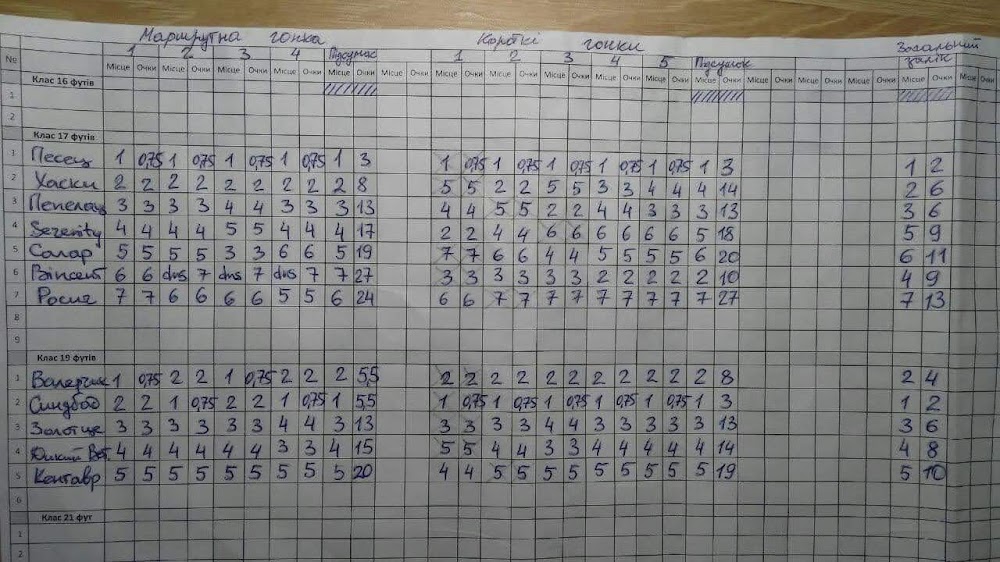 Маршрутна гонка Короткі гонки Загальний залік
1 2 3 4 Підсумок 1 2 3 4 5 Підсумок
№ Місце Очки Місце Очки Місце Очки Місце Очки Місце Очки Місце Очки Місце Очки Місце Очки Місце Очки Місце Очки Місце Очки Місце Очки Місце Очки Місце Очки Місце Очки Місце Очки Місце Очки Місце Очки
Клас 16 футів
1
2
Клас 17 футів
1 Песец 1 0,75 1 0,75 1 0,75 1 0,75 1 3 1 0,75 1 0,75 1 0,75 1 0,75 1 0,75 1 3 1 2
2 Хаски 2 2 2 2 2 2 2 2 2 8 5 5 2 2 5 5 3 3 4 4 4 14 2 6
3 Пепелац 3 3 3 3 4 4 3 3 3 13 4 4 5 5 2 2 4 4 3 3 3 13 3 6
4 Serenity 4 4 4 4 5 5 4 4 4 17 2 2 4 4 6 6 6 6 6 6 5 18 5 9
5 Солар 5 5 5 5 3 3 6 6 5 19 7 7 6 6 4 4 5 5 5 5 6 20 6 11
6 Вінсент 6 6 dns 7 dns 7 dns 7 7 27 3 3 3 3 3 3 2 2 2 2 2 10 4 9
7 Росиця 7 7 6 6 6 6 5 5 6 24 6 6 7 7 7 7 7 7 7 7 7 27 7 13
8
9
Клас 19 футів
1 Валерчик 1 0,75 2 2 1 0,75 2 2 2 5,5 2 2 2 2 2 2 2 2 2 2 2 8 2 4
2 Синдбад 2 2 1 0,75 2 2 1 0,75 1 5,5 1 0,75 1 0,75 1 0,75 1 0,75 1 0,75 1 3 1 2
3 Золотце 3 3 3 3 3 3 4 4 3 13 3 3 3 3 4 4 3 3 3 3 3 13 3 6
4 4 4 4 4 4 4 3 3 4 15 5 5 4 4 3 3 4 4 4 4 4 14 4 8
5 Кентавр 5 5 5 5 5 5 5 5 5 20 4 4 5 5 5 5 5 5 5 5 5 19 5 10
6
Клас 21 фут
1
2